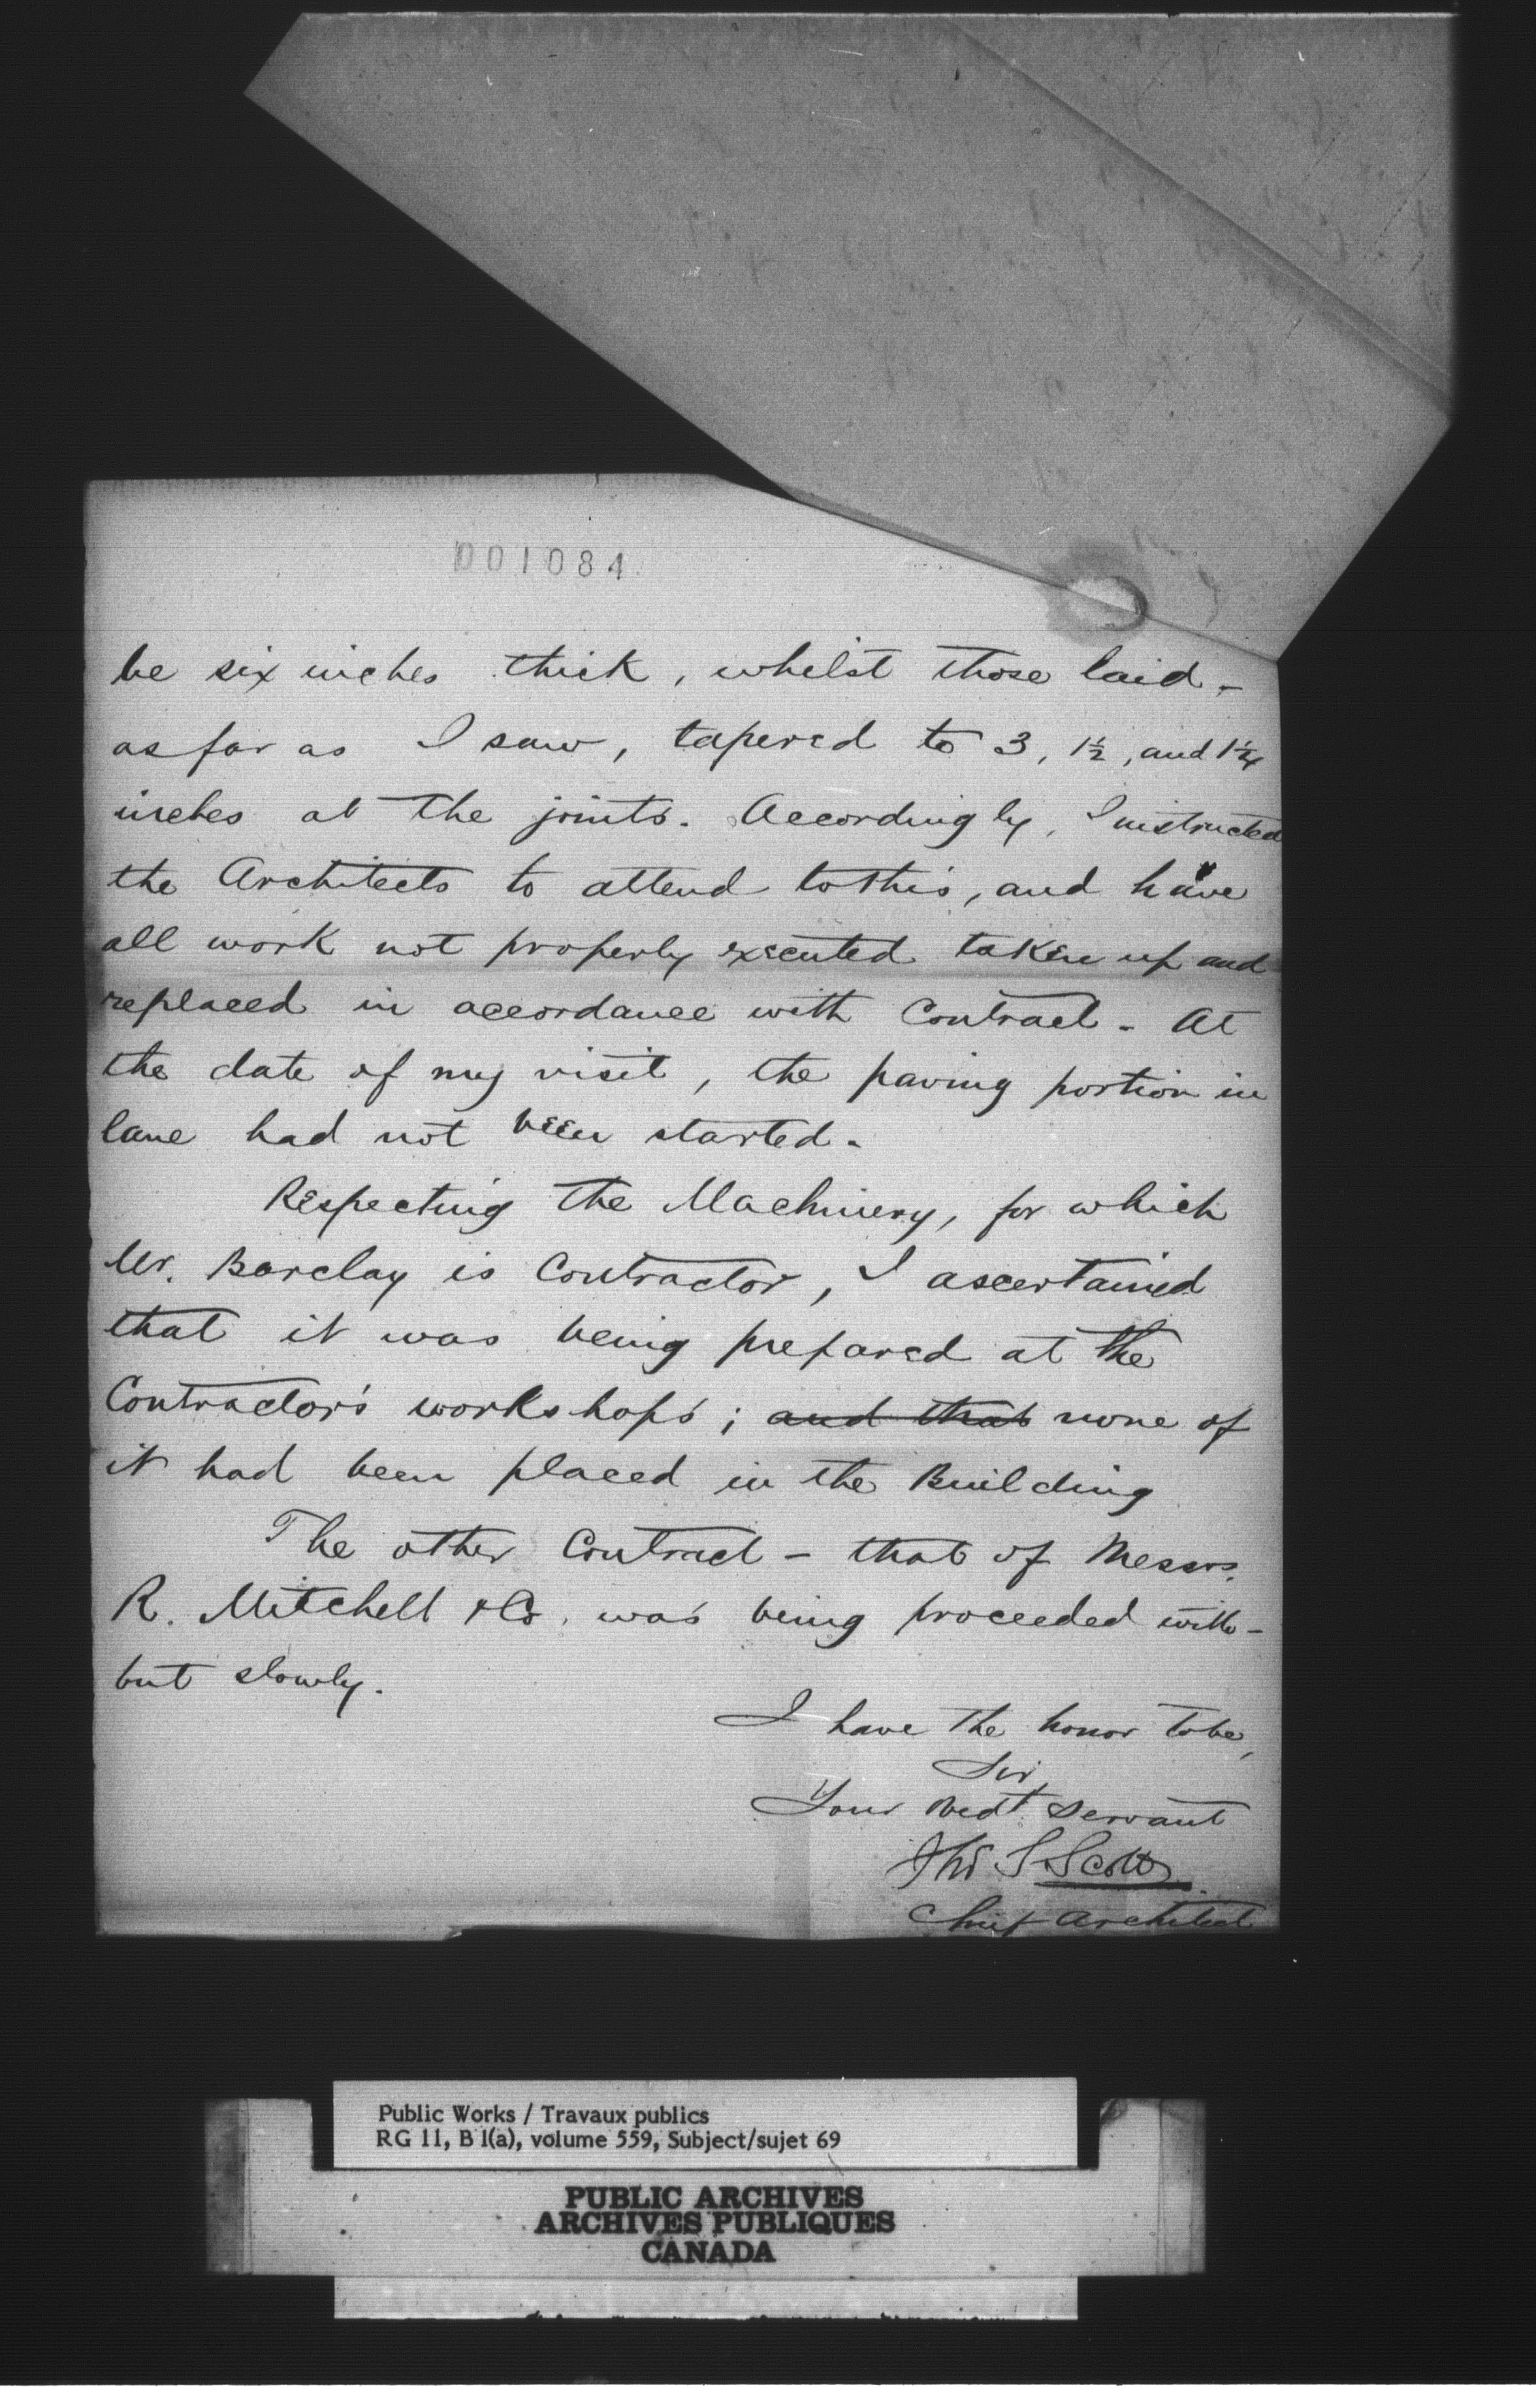 001084
be six inches thick, whilst those laid -
as far as I saw, tapered to 3, 1½, and 1¼
inches at the joints. Accordingly, I instructed
the Architects to attend to this, and have
all work not properly executed taken up and
replaced in accordance with Contract - At
the date of my visit, the paving portion in
lane had not been started -
Respecting the Machinery, for which
Mr. Barclay is Contractor, I ascertained
that it was being prepared at the
Contractor's workshops; and that none of
it had been placed in the Building
The other Contract - that of Messrs.
R. Mitchell & Co. was being proceeded with -
but slowly.
I have the honor to be,
Sir,
Your Obedt. Servant
Thos S. Scott
Chief Architect
Public Works / Travaux publics
RG 11, B 1(a), volume 559, Subject/sujet 69
PUBLIC ARCHIVES
ARCHIVES PUBLIQUES
CANADA